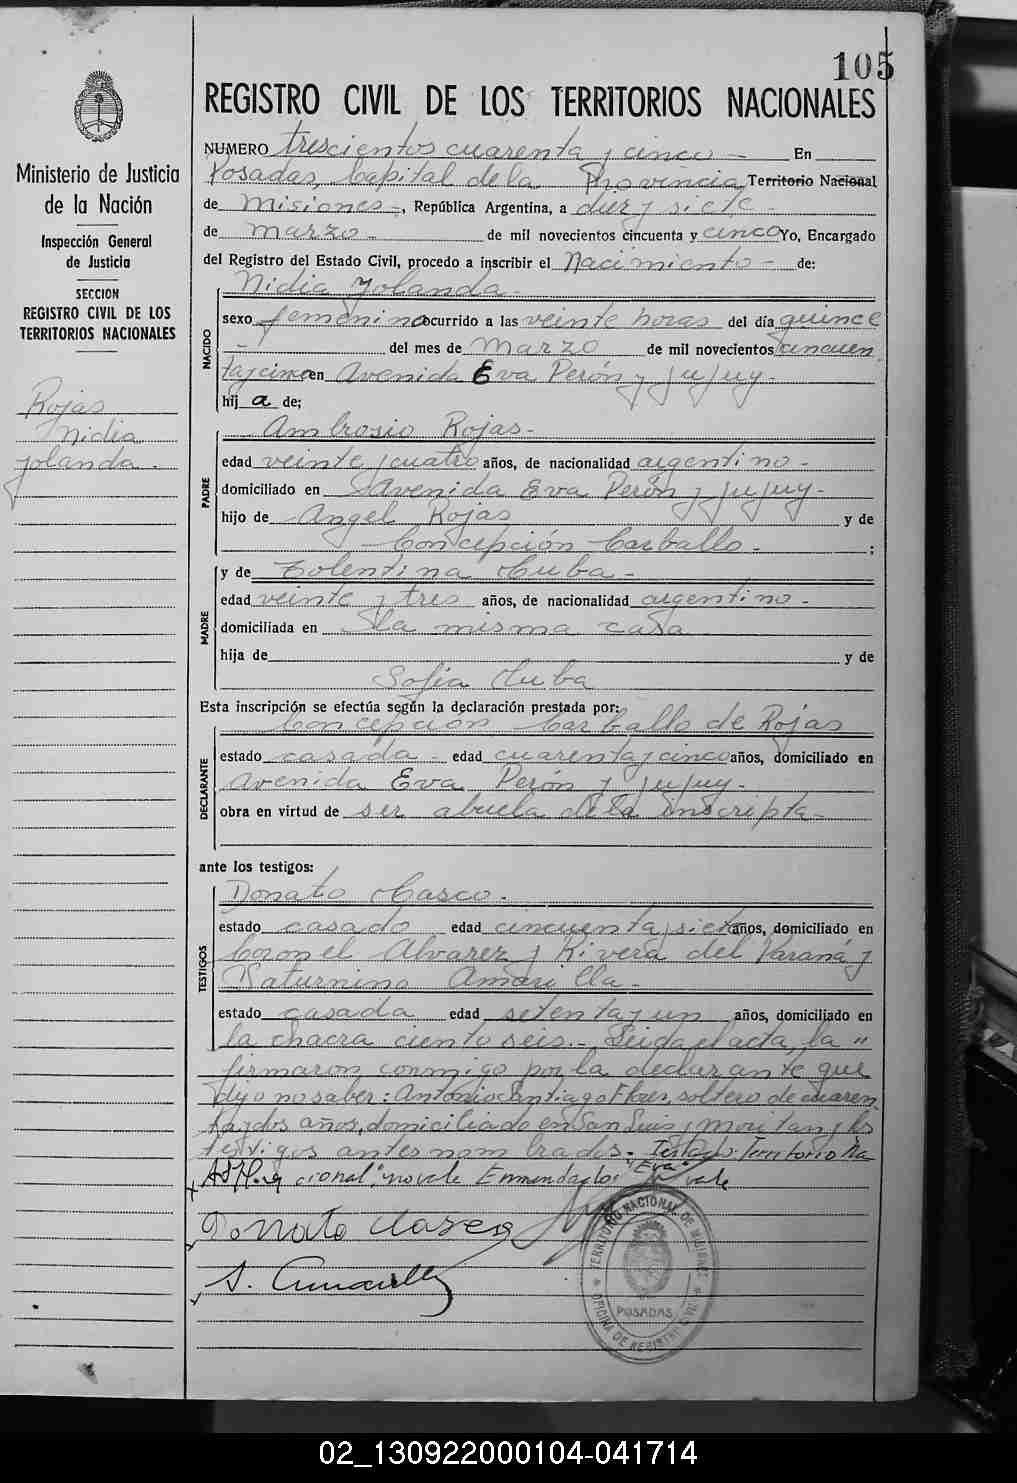 105
Ministerio de Justicia
de la Nación
Inspección General
de Justicia
SECCION
REGISTRO CIVIL DE LOS
TERRITORIOS NACIONALES
Rojas
Nidia
Yolanda.
REGISTRO CIVIL DE LOS TERRITORIOS NACIONALES
NUMERO trescientos cuarenta y cinco - En
Posadas, Capital de la Provincia Territorio Nacional
de Misiones -, República Argentina, a diez y siete -
de Marzo - de mil novecientos cincuenta y cinco Yo, Encargado
del Registro del Estado Civil, procedo a inscribir el Nacimiento - de:
NACIDO
Nidia Yolanda -
sexo femenino ocurrido a las veinte horas del día quince
- del mes de Marzo de mil novecientos cincuen
taycinco en Avenida Eva Perón y Jujuy -
hij a de;
PADRE
Ambrosio Rojas -
edad veinte y cuatro años, de nacionalidad argentino -
domiciliado en Avenida Eva Perón y Jujuy -
hijo de Angel Rojas y de
Concepción Carballo - ;
MADRE
y de Tolentina Cuba -
edad veinte y tres años, de nacionalidad argentino -
domiciliada en la misma casa
hija de y de
Sofia Cuba
Esta inscripción se efectúa según la declaración prestada por:
DECLARANTE
Concepción Carballo de Rojas
estado casada - edad cuarenta y cinco años, domiciliado en
Avenida Eva Perón y Jujuy -
obra en virtud de ser abuela de la inscripta -
ante los testigos:
TESTIGOS
Donato Casco -
estado casado edad cincuenta y siete años, domiciliado en
Coronel Alvarez y Rivera del Paraná y
Saturnino Amarilla -
estado casada edad setenta y un años, domiciliado en
la chacra ciento seis.- Leida el acta, la "
firmaron conmigo por la declarante que
dijo no saber: Antonio Santiago Flores, soltero de cuaren
ta y dos años, domiciliado en San Luis y Moritan y los
testigos antes nombrados - Testado: Territorio Na
cional: no vale Enmendado: "Eva" vale
Donato Casco
S. Amarilla
TERRITORIO NACIONAL DE MISIONES
POSADAS
OFICINA DE REGISTRO CIVIL
02_130922000104-041714